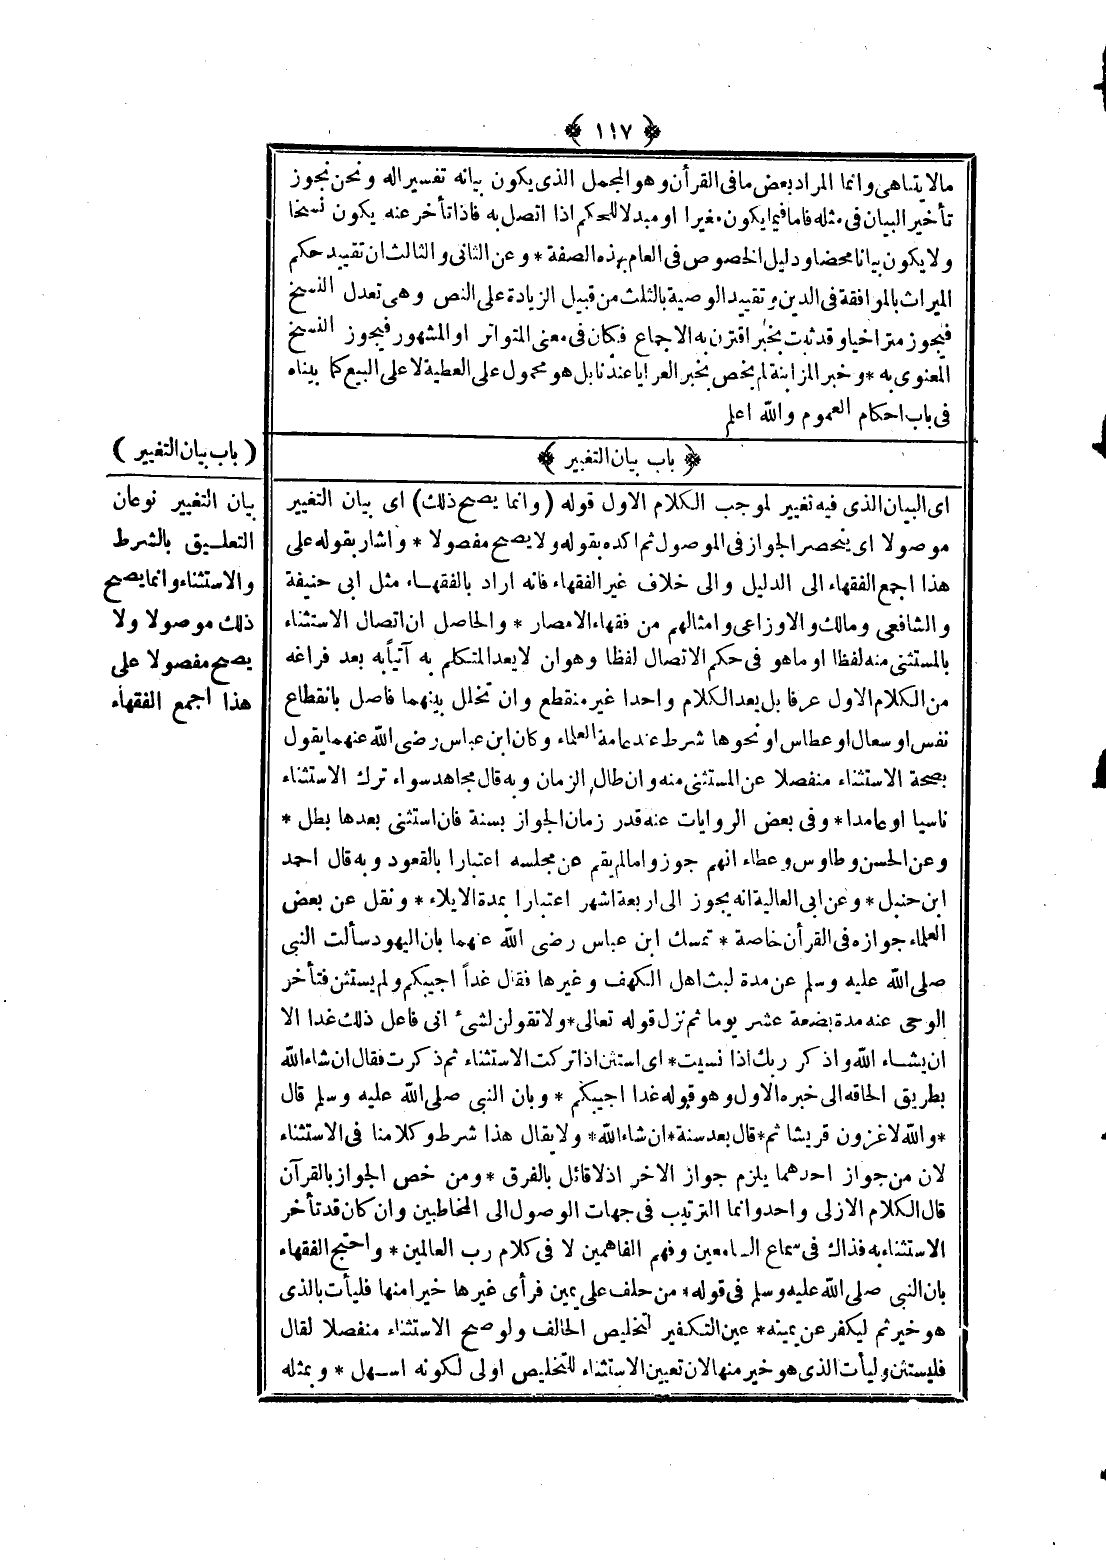 ﴿ ١١٧ ﴾
مالايتناهى وانما المراد بعض مافى القرأن وهو المجمل الذى يكون بيانه تفسيراله ونحن نجوز
تأخير البيان فى مثله فاما فيما يكون مغيرا او مبدلا للحكم اذا اتصل به فاذا تأخر عنه يكون نسخا
ولايكون بيانا محضا ودليل الخصوص فى العام بهذه الصفة * وعن الثانى والثالث ان تقييد حكم
الميراث بالموافقة فى الدين وتقييد الوصية بالثلث من قبيل الزيادة على النص وهى تعدل النسخ
فيجوز متراخيا وقد ثبت بخبر اقترن به الاجماع فكان فى معنى المتواتر او المشهور فيجوز النسخ
المعنوى به * وخبر المزابنة لم يخص بخبر العرايا عندنا بل هو محمول على العطية لا على البيع كما بيناه
فى باب احكام العموم والله اعلم
﴿ باب بيان التغيير ﴾
اى البيان الذى فيه تغيير لموجب الكلام الاول قوله ( وانما يصح ذلك ) اى بيان التغيير
موصولا اى ينحصر الجواز فى الموصول ثم اكده بقوله ولا يصح مفصولا * واشار بقوله على
هذا اجمع الفقهاء الى الدليل والى خلاف غير الفقهاء فانه اراد بالفقهاء مثل ابى حنيفة
والشافعى ومالك والاوزاعى وامثالهم من فقهاء الامصار * والحاصل ان اتصال الاستثناء
بالمستثنى منه لفظا او ماهو فى حكم الاتصال لفظا وهو ان لايعد المتكلم به آتياً به بعد فراغه
من الكلام الاول عرفا بل يعد الكلام واحدا غير منقطع وان تخلل بينهما فاصل بانقطاع
نفس او سعال او عطاس او نحوها شرط عند عامة العلماء وكان ابن عباس رضى الله عنهما يقول
بصحة الاستثناء منفصلا عن المستثنى منه وان طال الزمان وبه قال مجاهد سواء ترك الاستثناء
ناسيا او عامدا * وفى بعض الروايات عنه قدر زمان الجواز بسنة فان استثنى بعدها بطل *
وعن الحسن وطاوس وعطاء انهم جوزوا مالم يقم عن مجلسه اعتبارا بالقعود وبه قال احمد
ابن حنبل * وعن ابى العالية انه يجوز الى اربعة اشهر اعتبارا بمدة الايلاء * ونقل عن بعض
العلماء جوازه فى القرأن خاصة * تمسك ابن عباس رضى الله عنهما بان اليهود سألت النبى
صلى الله عليه وسلم عن مدة لبث اهل الكهف وغيرها فقال غداً اجيبكم ولم يستثن فتأخر
الوحى عنه مدة بضعة عشر يوما ثم نزل قوله تعالى * ولا تقولن لشىء انى فاعل ذلك غدا الا
ان يشاء الله واذكر ربك اذا نسيت * اى استثن اذا تركت الاستثناء ثم ذكرت فقال ان شاء الله
بطريق الحاقه الى خبره الاول وهو قوله غدا اجيبكم * وبان النبى صلى الله عليه وسلم قال
* والله لاغزون قريشا ثم * قال بعد سنة * ان شاء الله * ولا يقال هذا شرط وكلامنا فى الاستثناء
لان من جواز احدهما يلزم جواز الاخر اذلا قائل بالفرق * ومن خص الجواز بالقرآن
قال الكلام الازلى واحد وانما الترتيب فى جهات الوصول الى المخاطبين وان كان قد تأخر
الاستثناء به فذاك فى سماع السامعين وفهم الفاهمين لا فى كلام رب العالمين * واحتج الفقهاء
بان النبى صلى الله عليه وسلم فى قوله * من حلف على يمين فرأى غيرها خيرا منها فليأت بالذى
هو خير ثم ليكفر عن يمينه * عين التكفير لتخليص الحالف ولو صح الاستثناء منفصلا لقال
فليستثن وليأت الذى هو خير منها لان تعيين الاستثناء للتخليص اولى لكونه اسهل * وبمثله
( باب بيان التغيير )
بيان التغيير نوعان
التعليق بالشرط
والاستثناء وانما يصح
ذلك موصولا ولا
يصح مفصولا على
هذا اجمع الفقهاء